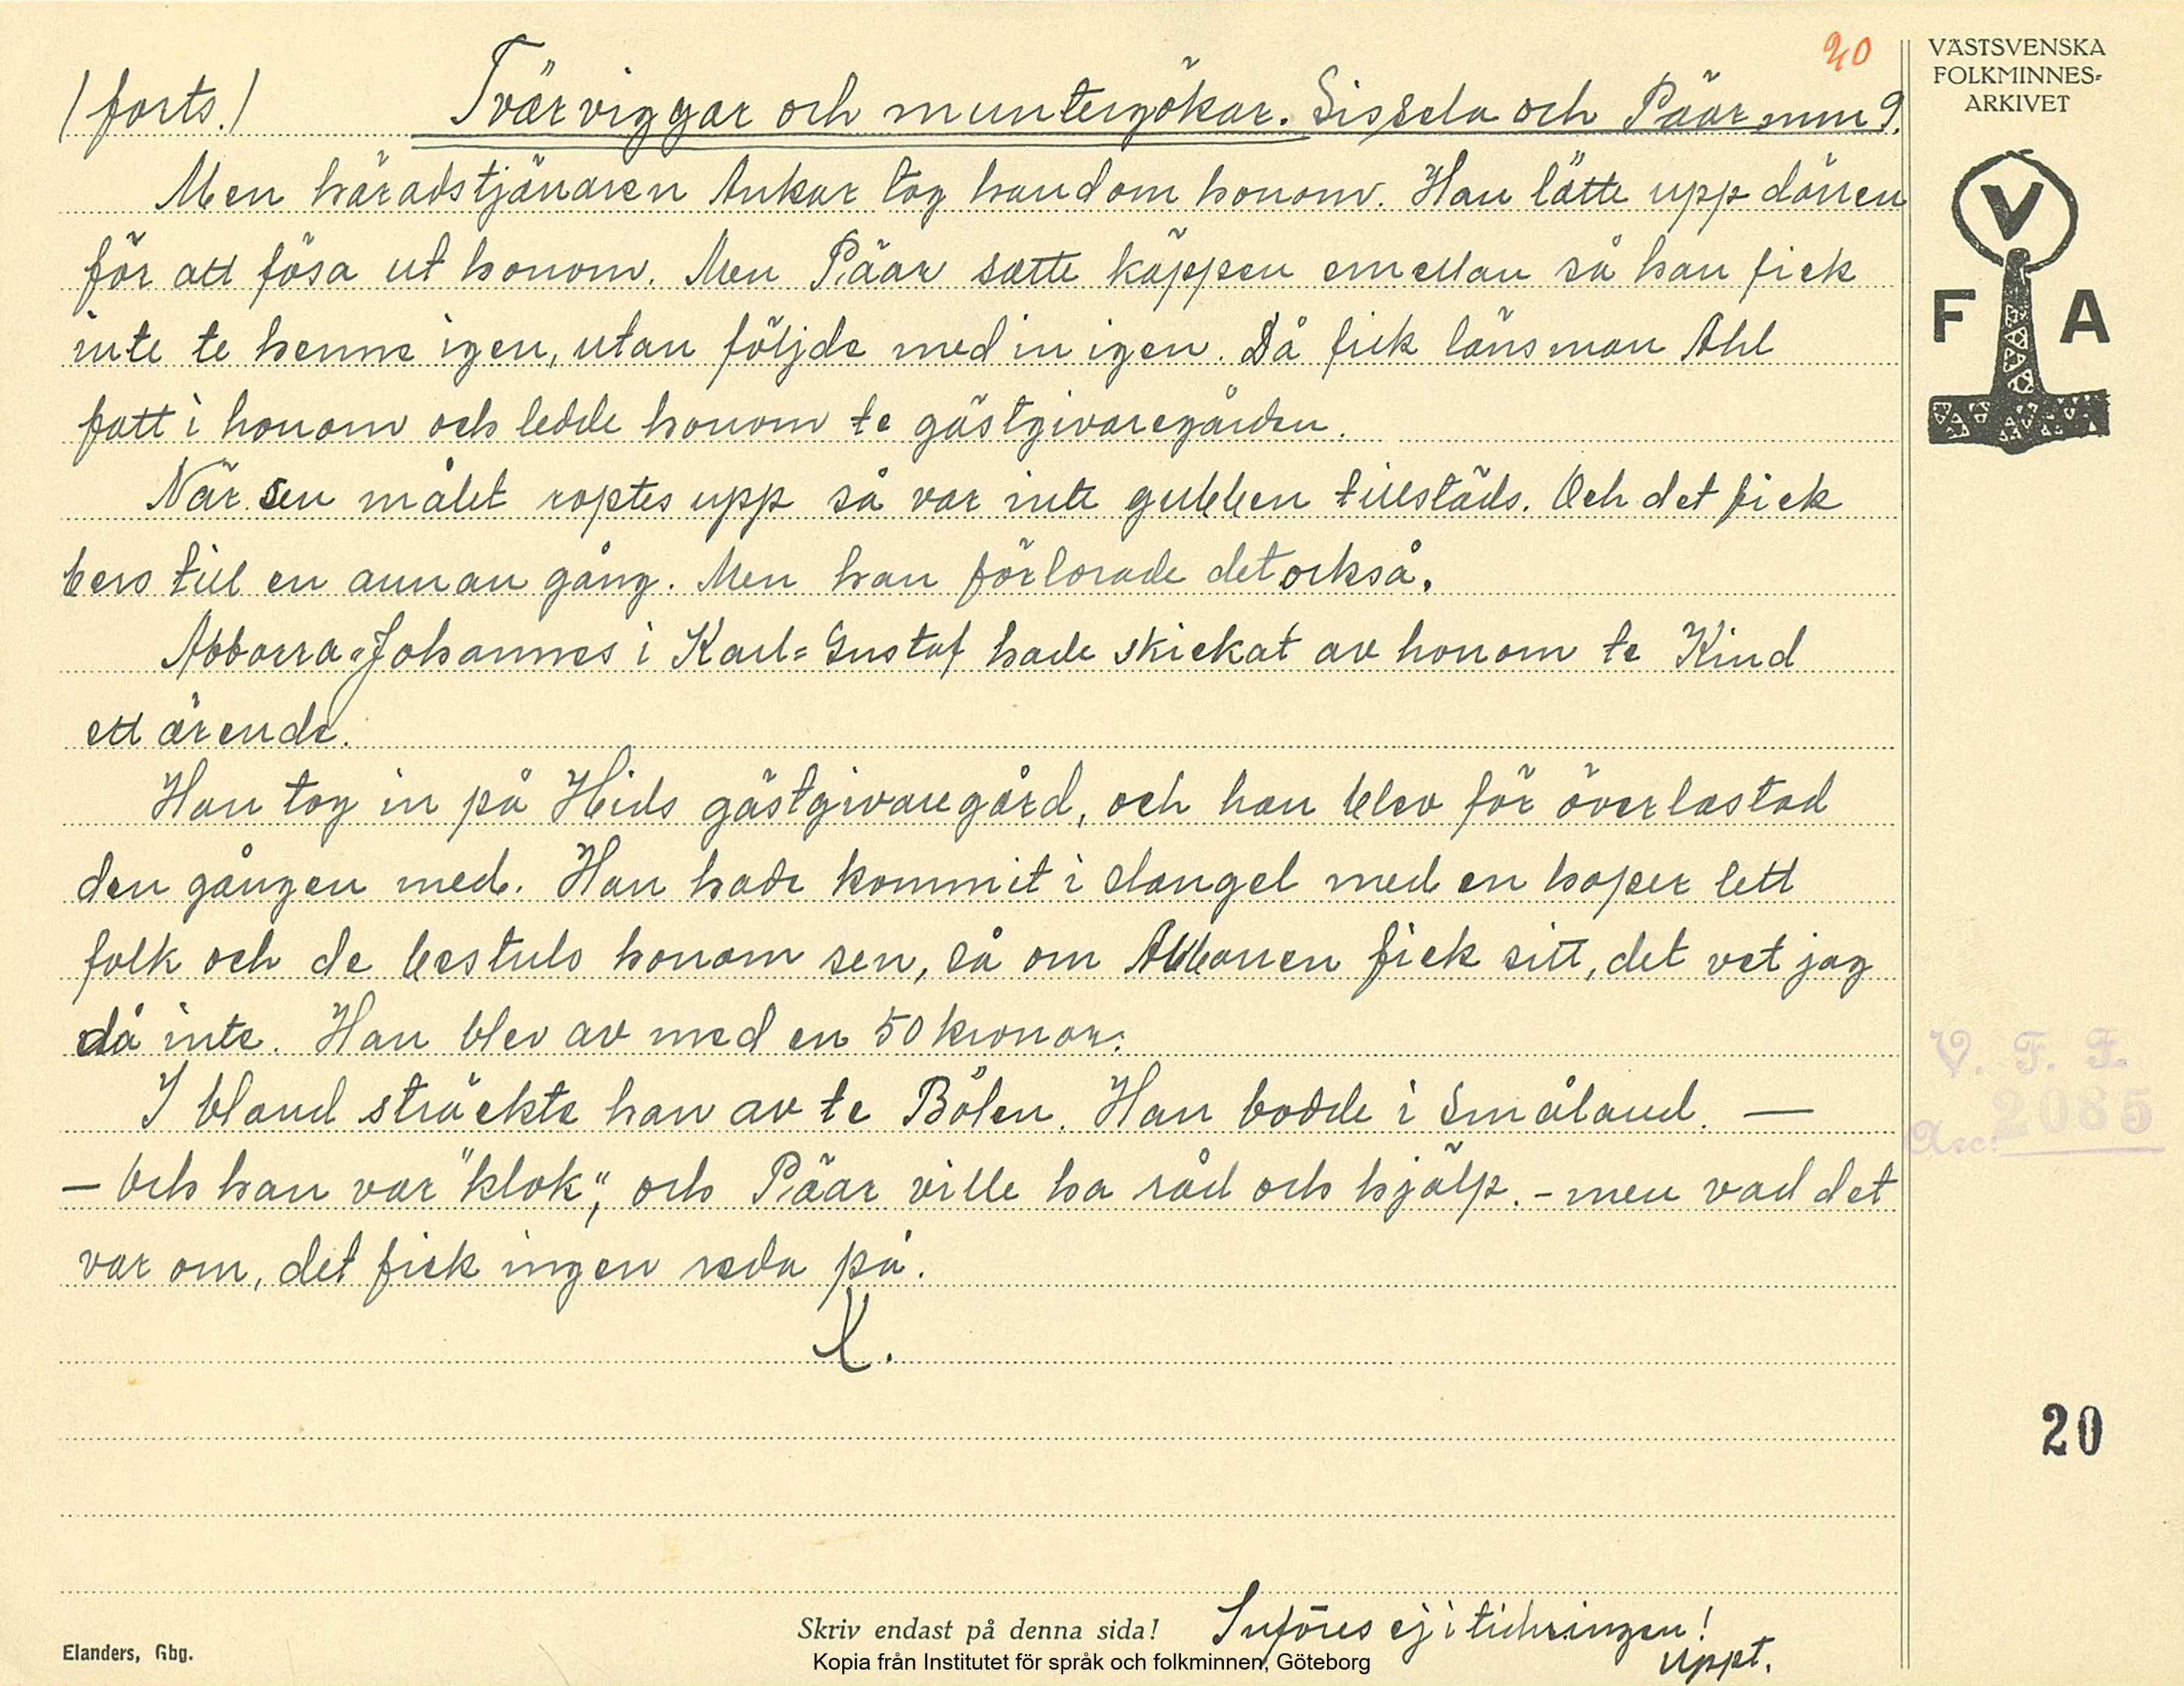 20
(forts.) Tvärviggar och muntergökar. Sissela och Päär mm 9.
Men häradstjänaren Ankar tog hand om honom. Han lätte upp dörren
för att fösa ut honom. Men Päär satte käppen emellan så han fick
inte te henne igen, utan följde med in igen. Då fick länsman Ahl
fatt i honom och ledde honom te gästgivaregården.
När sen målet roptes upp så var inte gubben tillstäds. Och det fick
bero till en annan gång. Men han förlorade det också.
Abborra-Johannes i Karl-Gustaf hade skickat av honom te Kind
ett ärende.
Han tog in på Hids gästgivaregård, och han blev för överlastad
den gången med. Han hade kommit i slangel med en hoper lett
folk och de bestulo honom sen, så om Abboren fick sitt, det vet jag
då inte. Han blev av med en 50 kronor.
I bland sträckte han av te Bölen. Han bodde i Småland. —
— Och han var "klok", och Päär ville ha råd och hjälp. - men vad det
var om, det fick ingen reda på.
VÄSTSVENSKA
FOLKMINNES-
ARKIVET
V
F A
V. F. F.
Acc: 2085
20
Skriv endast på denna sida!
Införes ej i tidningen!
Uppt.
Elanders, Gbg.
Kopia från Institutet för språk och folkminnen, Göteborg